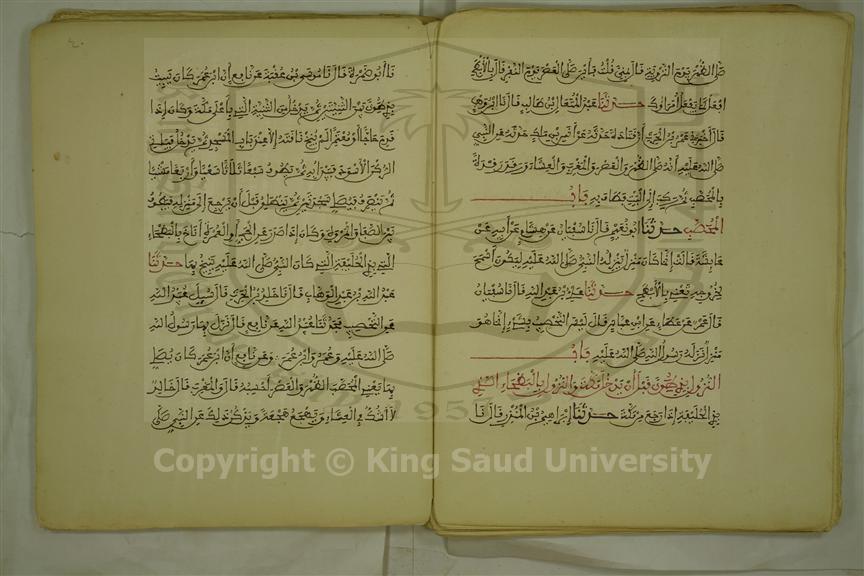 صلى الظهر يوم التروية قال بمنى قلت فأين صلى العصر يوم النفر قال بالأبطح
افعل كما يفعل أمراؤك حدثنا عبد المتعال بن طالب قال نا ابن وهب
قال أخبرني عمرو بن الحارث أن قتادة حدثه عن أنس بن مالك حدثه عن النبي
صلى الله عليه أنه صلى الظهر والعصر والمغرب والعشاء ورقد رقدة
بالمحصب ثم ركب إلى البيت فطاف به باب
المحصب حدثنا أبو نعيم قال نا سفيان عن هشام عن أبيه عن
عائشة قالت إنما كان منزل ينزله النبي صلى الله عليه ليكون أسمح
لخروجه تعني بالأبطح حدثنا علي بن عبد الله قال نا سفيان
قال عمرو عن عطاء عن ابن عباس قال ليس التحصيب بشيء إنما هو
منزل نزله رسول الله صلى الله عليه باب
النزول بذي طوى قبل أن يدخل مكة والنزول بالبطحاء التي
بذي الحليفة إذا رجع من مكة حدثنا إبراهيم بن المنذر قال نا
نا أبو ضمرة قال نا موسى بن عقبة عن نافع أن ابن عمر كان يبيت
بذي طوى بين الثنيتين ثم يدخل من الثنية التي بأعلى مكة وكان إذا
قدم حاجا أو معتمرا لم ينخ ناقته إلا عند باب المسجد ثم يدخل فيأتي
الركن الأسود فيبدأ به ثم يطوف سبعا ثلاثا سعيا وأربعا مشيا
ثم ينصرف فيصلي سجدتين ثم ينطلق قبل أن يرجع إلى منزله فيطوف
بين الصفا والمروة وكان إذا صدر عن الحج أو العمرة أناخ بالبطحاء
التي بذي الحليفة التي كان النبي صلى الله عليه ينيخ بها حدثنا
عبد الله بن عبد الوهاب قال نا خالد بن الحارث قال سئل عبيد الله
عن التحصيب فحدثنا عبيد الله عن نافع قال نزل بها رسول الله
صلى الله عليه وعمر وابن عمر وعن نافع أن ابن عمر كان يصلي
بها يعني المحصب الظهر والعصر أحسبه قال والمغرب قال خالد
لا أشك في العشاء ويهجع هجعة ويذكر ذلك عن النبي صلى
Copyright © King Saud University
1957